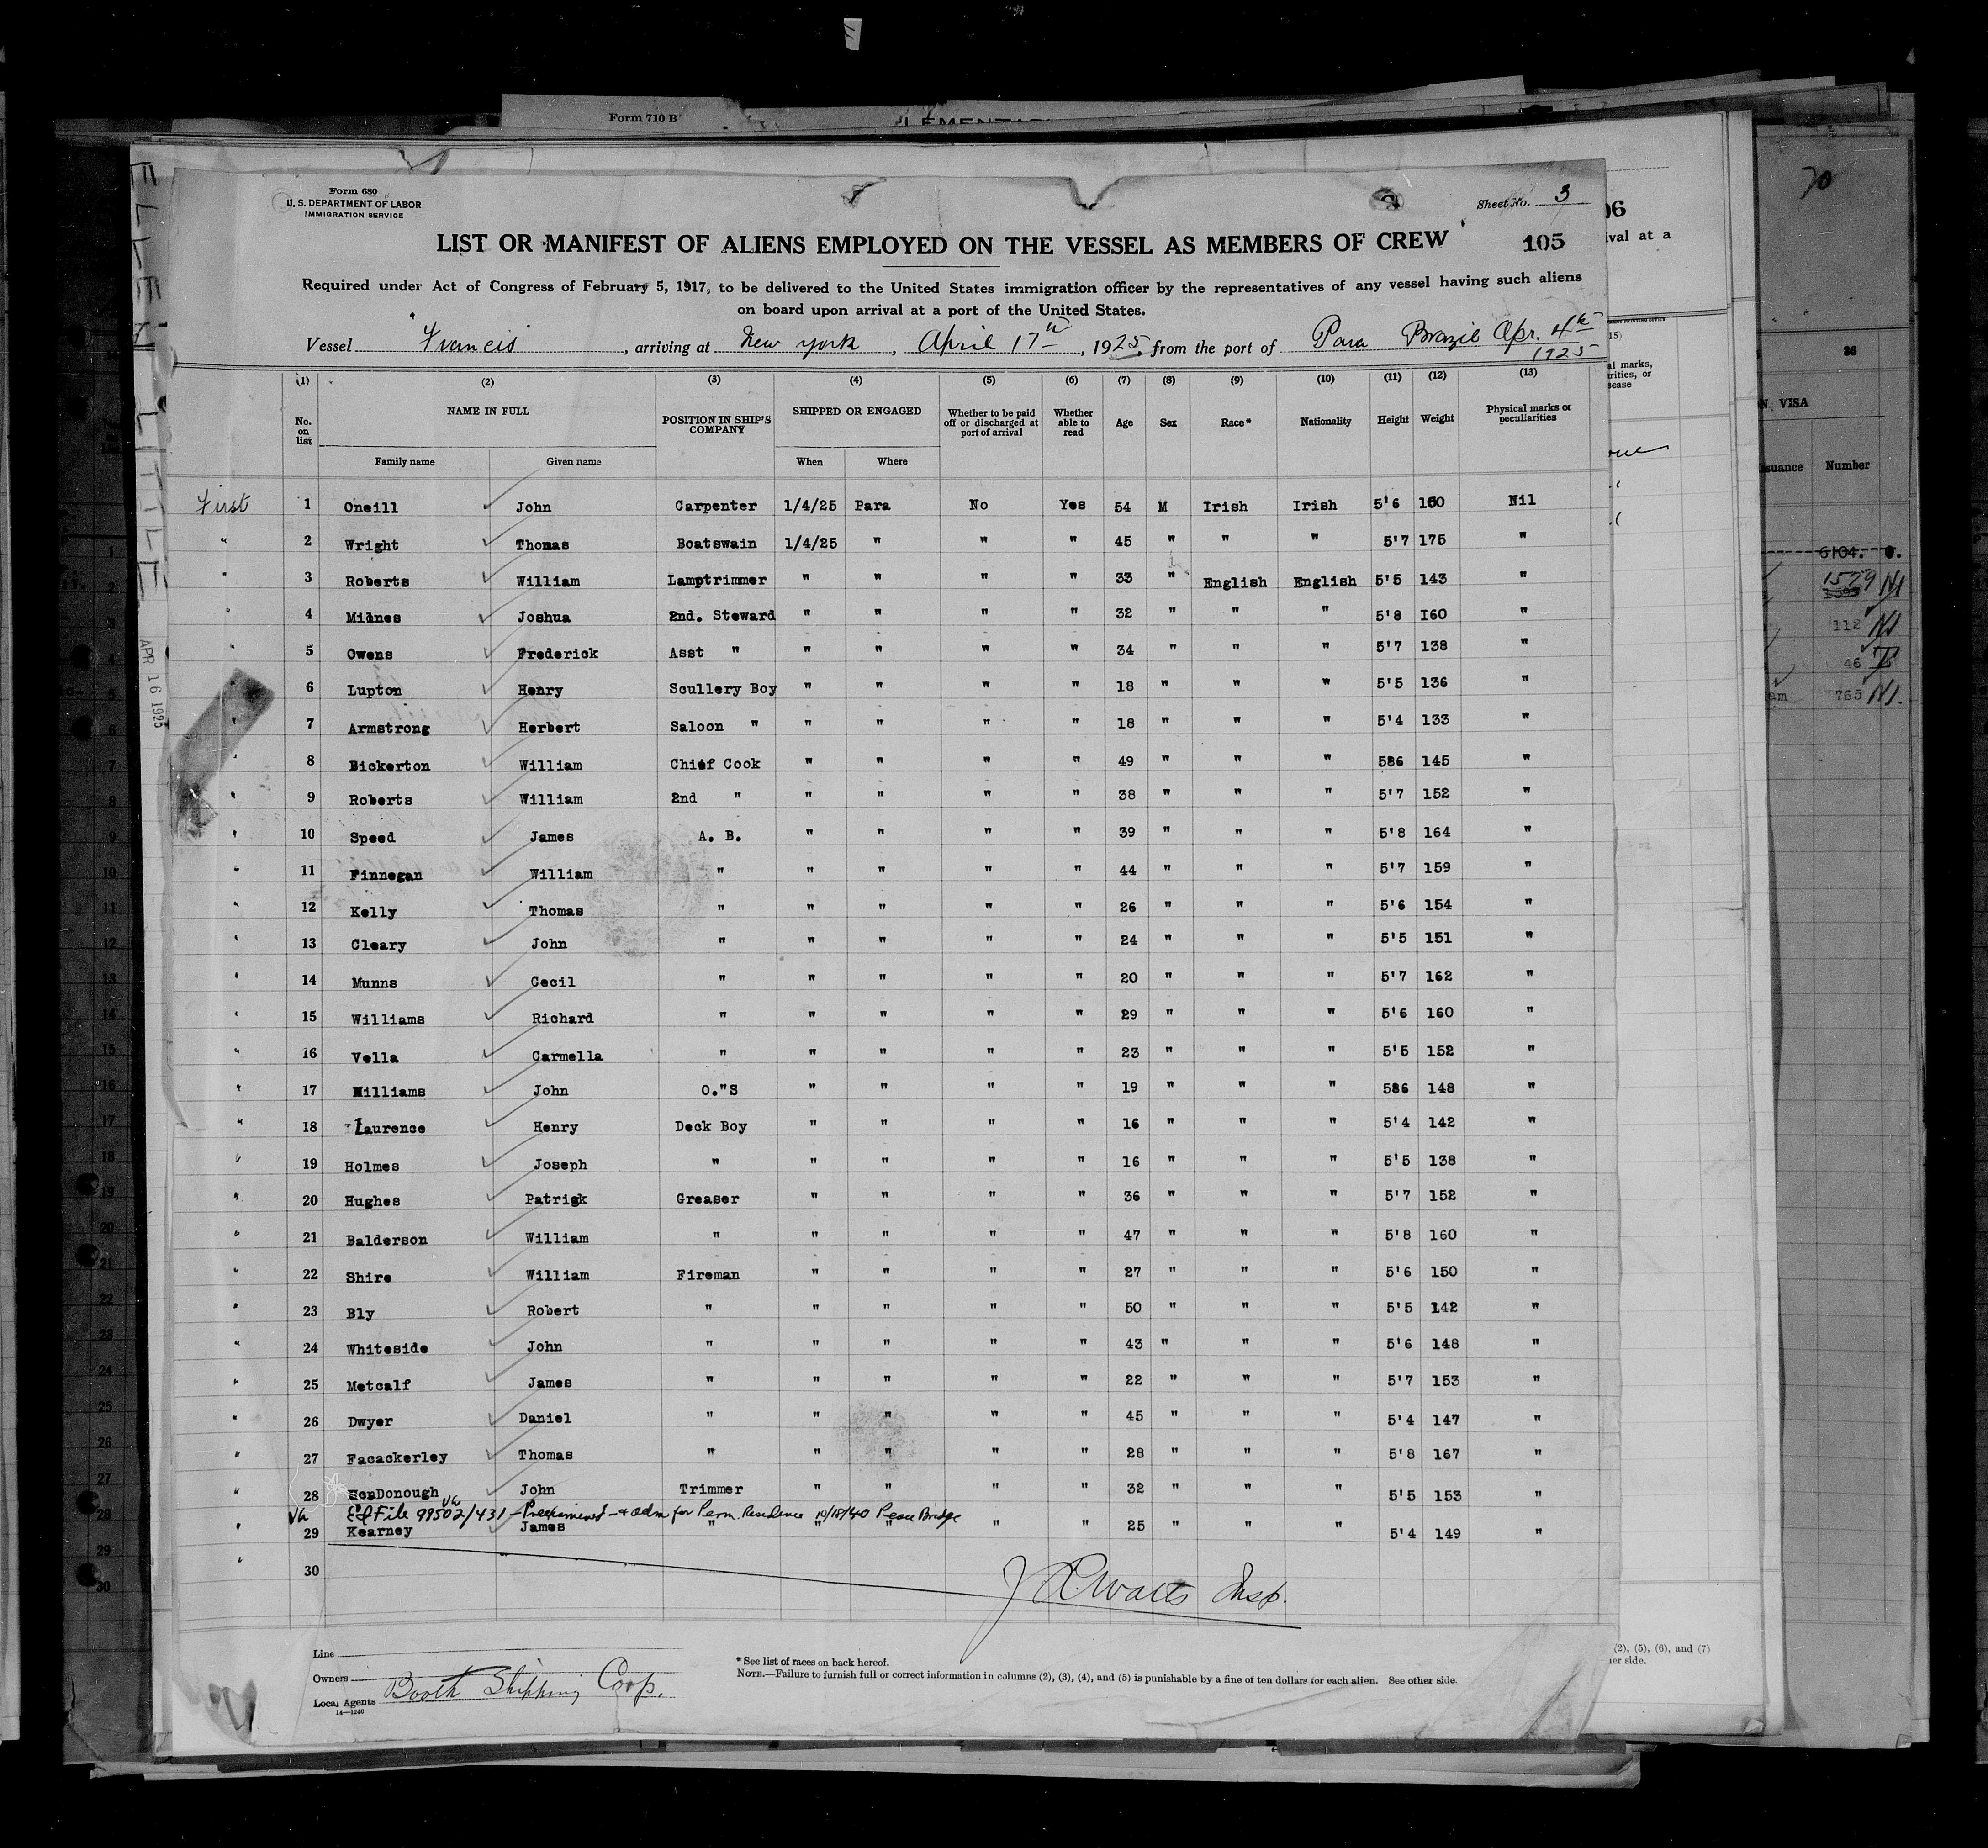 Form 710 B
Form 680
U. S. DEPARTMENT OF LABOR
IMMIGRATION SERVICE
Sheet No. 3
LIST OR MANIFEST OF ALIENS EMPLOYED ON THE VESSEL AS MEMBERS OF CREW
105
Required under Act of Congress of February 5, 1917, to be delivered to the United States immigration officer by the representatives of any vessel having such aliens
on board upon arrival at a port of the United States.
Vessel Francis, arriving at New York, April 17th, 1925, from the port of Para Brazil Apr. 4th 1925
(1) (2) (3) (4) (5) (6) (7) (8) (9) (10) (11) (12) (13)
No. on list NAME IN FULL POSITION IN SHIP'S COMPANY SHIPPED OR ENGAGED Whether to be paid off or discharged at port of arrival Whether able to read Age Sex Race* Nationality Height Weight Physical marks or peculiarities
Family name Given name When Where
First 1 Oneill John Carpenter 1/4/25 Para No Yes 54 M Irish Irish 5'6 160 Nil
" 2 Wright Thomas Boatswain 1/4/25 " " " 45 " " " 5'7 175 "
" 3 Roberts William Lamptrimmer " " " " 33 " English English 5'5 143 "
" 4 Milnes Joshua 2nd. Steward " " " " 32 " " " 5'8 I60 "
" 5 Owens Frederick Asst " " " " " 34 " " " 5'7 138 "
" 6 Lupton Henry Scullery Boy " " " " 18 " " " 5'5 136 "
" 7 Armstrong Herbert Saloon " " " " " 18 " " " 5'4 133 "
" 8 Bickerton William Chief Cook " " " " 49 " " " 586 145 "
" 9 Roberts William 2nd " " " " " 38 " " " 5'7 152 "
" 10 Speed James A. B. " " " " 39 " " " 5'8 164 "
" 11 Finnegan William " " " " " 44 " " " 5'7 159 "
" 12 Kelly Thomas " " " " " 26 " " " 5'6 154 "
" 13 Cleary John " " " " " 24 " " " 5'5 151 "
" 14 Munns Cecil " " " " " 20 " " " 5'7 162 "
" 15 Williams Richard " " " " " 29 " " " 5'6 160 "
" 16 Vella Carmella " " " " " 23 " " " 5'5 152 "
" 17 Williams John O."S " " " " 19 " " " 586 148 "
" 18 Laurence Henry Deck Boy " " " " 16 " " " 5'4 142 "
" 19 Holmes Joseph " " " " " 16 " " " 5'5 138 "
" 20 Hughes Patrick Greaser " " " " 36 " " " 5'7 152 "
" 21 Balderson William " " " " " 47 " " " 5'8 160 "
" 22 Shire William Fireman " " " " 27 " " " 5'6 150 "
" 23 Bly Robert " " " " " 50 " " " 5'5 142 "
" 24 Whiteside John " " " " " 43 " " " 5'6 148 "
" 25 Metcalf James " " " " " 22 " " " 5'7 153 "
" 26 Dwyer Daniel " " " " " 45 " " " 5'4 147 "
" 27 Facackerley Thomas " " " " " 28 " " " 5'8 167 "
" 28 McDonough John Trimmer " " " " 32 " " " 5'5 153 "
File 99502/431 – Preexamined – & adm for Perm. Residence 10/18/40 Peace Bridge
" 29 Kearney James " " " " " 25 " " " 5'4 149 "
" 30
J R Watts Insp.
Line
Owners
Local Agents Booth Shipping Corp.
14—1240
* See list of races on back hereof.
NOTE.—Failure to furnish full or correct information in columns (2), (3), (4), and (5) is punishable by a fine of ten dollars for each alien. See other side.
ELLEN LITTLE
APR 16 1925
06
ival at a
15)
al marks,
rities, or
sease
(2), (5), (6), and (7)
er side.
70
36
N, VISA
suance Number
6104.
1579
112
46
765